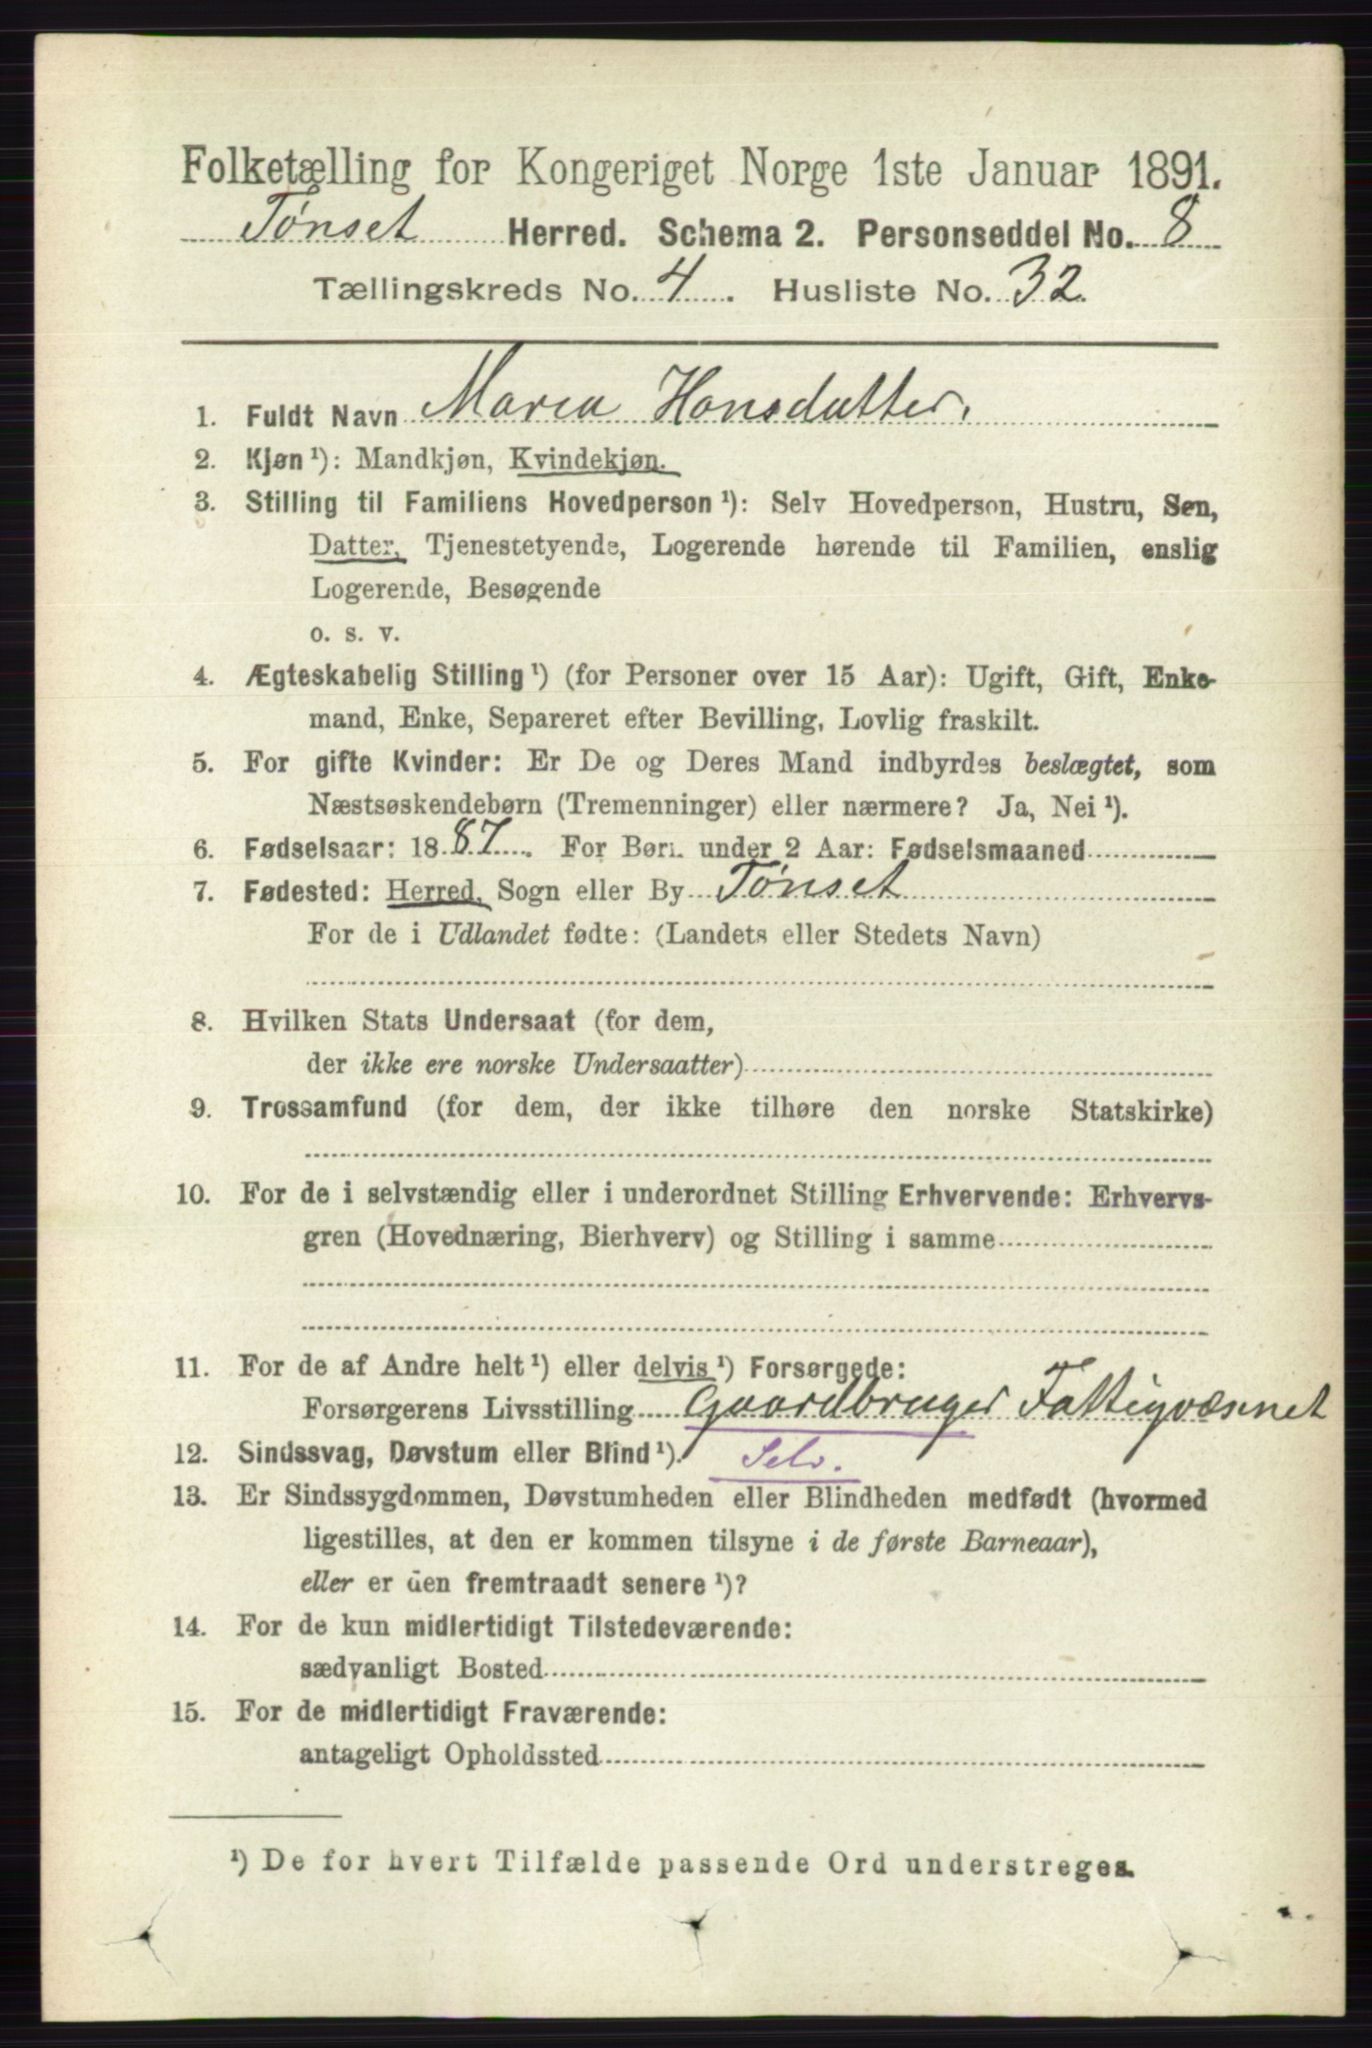 Folketælling for Kongeriget Norge 1ste Januar 1891.
Tønset Herred. Schema 2. Personseddel No. 8
Tællingskreds No. 4. Husliste No. 32.
1. Fuldt Navn Maria Hansdatter.
2. Kjøn¹): Mandkjøn, Kvindekjøn.
3. Stilling til Familiens Hovedperson¹): Selv Hovedperson, Hustru, Søn,
Datter, Tjenestetyende, Logerende hørende til Familien, enslig
Logerende, Besøgende
o. s. v.
4. Ægteskabelig Stilling¹) (for Personer over 15 Aar): Ugift, Gift, Enke-
mand, Enke, Separeret efter Bevilling, Lovlig fraskilt.
5. For gifte Kvinder: Er De og Deres Mand indbyrdes beslægtet, som
Næstsøskendebørn (Tremenninger) eller nærmere? Ja, Nei¹).
6. Fødselsaar: 1887. For Børn under 2 Aar: Fødselsmaaned
7. Fødested: Herred, Sogn eller By Tønset
For de i Udlandet fødte: (Landets eller Stedets Navn)
8. Hvilken Stats Undersaat (for dem,
der ikke ere norske Undersaatter)
9. Trossamfund (for dem, der ikke tilhøre den norske Statskirke)
10. For de i selvstændig eller i underordnet Stilling Erhvervende: Erhvervs-
gren (Hovednæring, Bierhverv) og Stilling i samme
11. For de af Andre helt¹) eller delvis¹) Forsørgede:
Forsørgerens Livsstilling Gaardbruger Fattigvæsenet
12. Sindssvag, Døvstum eller Blind¹). Selv.
13. Er Sindssygdommen, Døvstumheden eller Blindheden medfødt (hvormed
ligestilles, at den er kommen tilsyne i de første Barneaar),
eller er den fremtraadt senere¹)?
14. For de kun midlertidigt Tilstedeværende:
sædvanligt Bosted
15. For de midlertidigt Fraværende:
antageligt Opholdssted
¹) De for hvert Tilfælde passende Ord understreges.